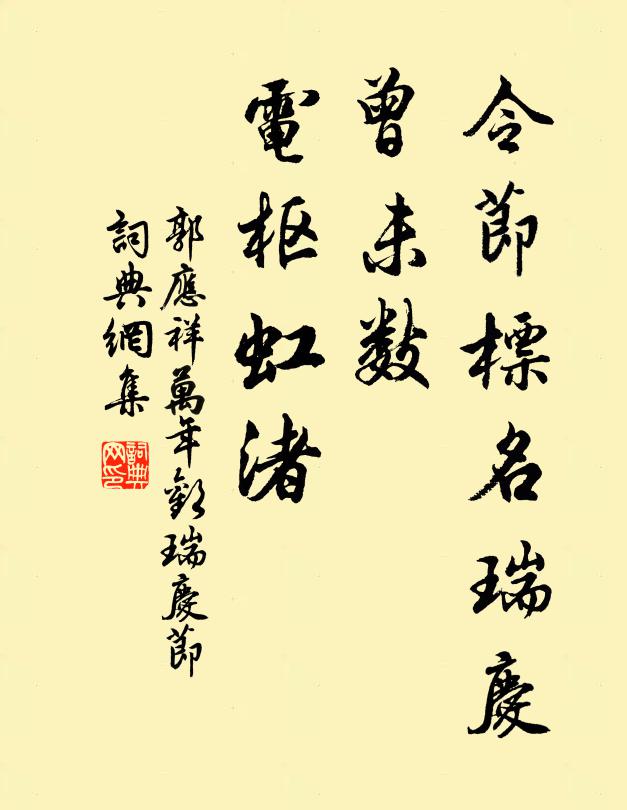 令節標名瑞慶
曾未數
電枢虹渚
郭應祥萬年歡瑞慶節
詞典網集
詞典網印